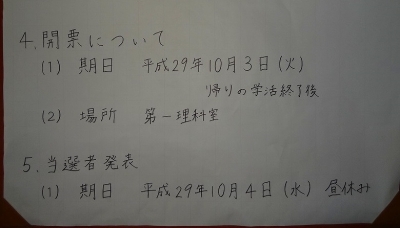 4. 開票について
(1) 期日 平成29年10月3日(火)
帰りの学活終了後
(2) 場所 第一理科室
5. 当選者発表
(1) 期日 平成29年10月4日(水) 昼休み